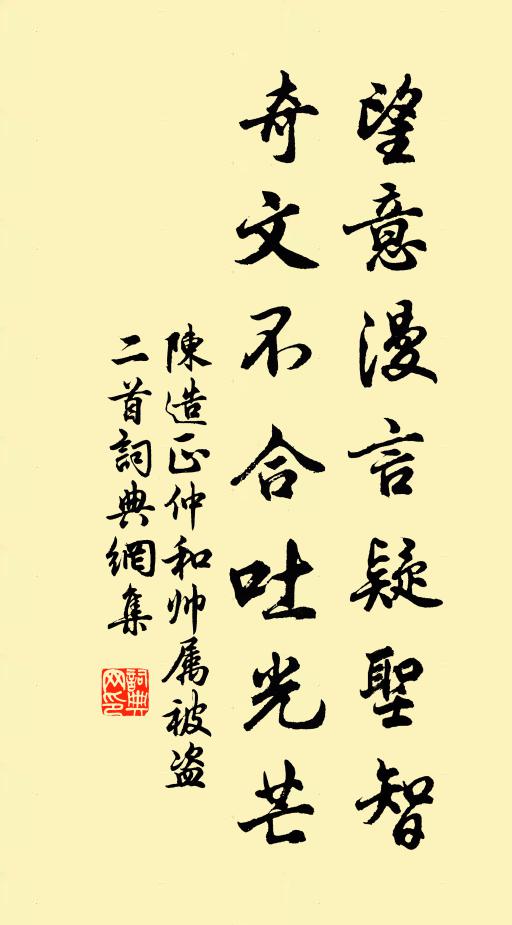 望意漫言疑聖智
奇文不合吐光芒
陳造正仲和帅属被盗
二首詞典網集
詞典网印